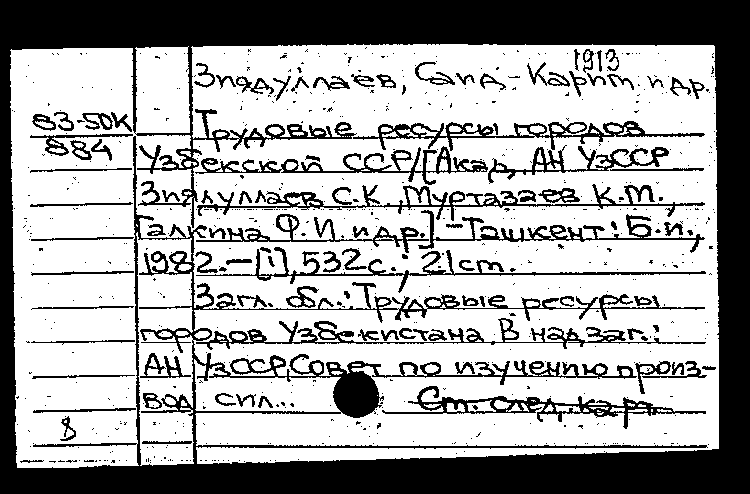 1913
Зиядуллаев, Саид-Карим и др.
83-50К
884
Трудовые ресурсы городов
Узбекской ССР/[Акад. АН УзССР
Зиядуллаев С.К., Муртазаев К.М.,
Галкина Ф.И. и др.].-Ташкент: Б.и.,
1982.-[1], 532с.; 21 cm.
Загл. обл.: Трудовые ресурсы
городов Узбекистана. В надзаг.:
АН УзССР, Совет по изучению произ-
вод. сил...
Ст. след. карт.
8